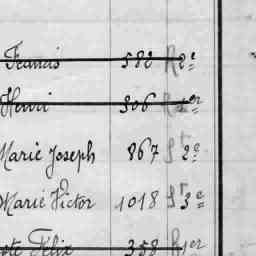 Francis 582 R 2e
Henri 306 R 1er
Marie Joseph 867 St 2e
Marie Victor 1018 St 3e
Félix 358 R 1er